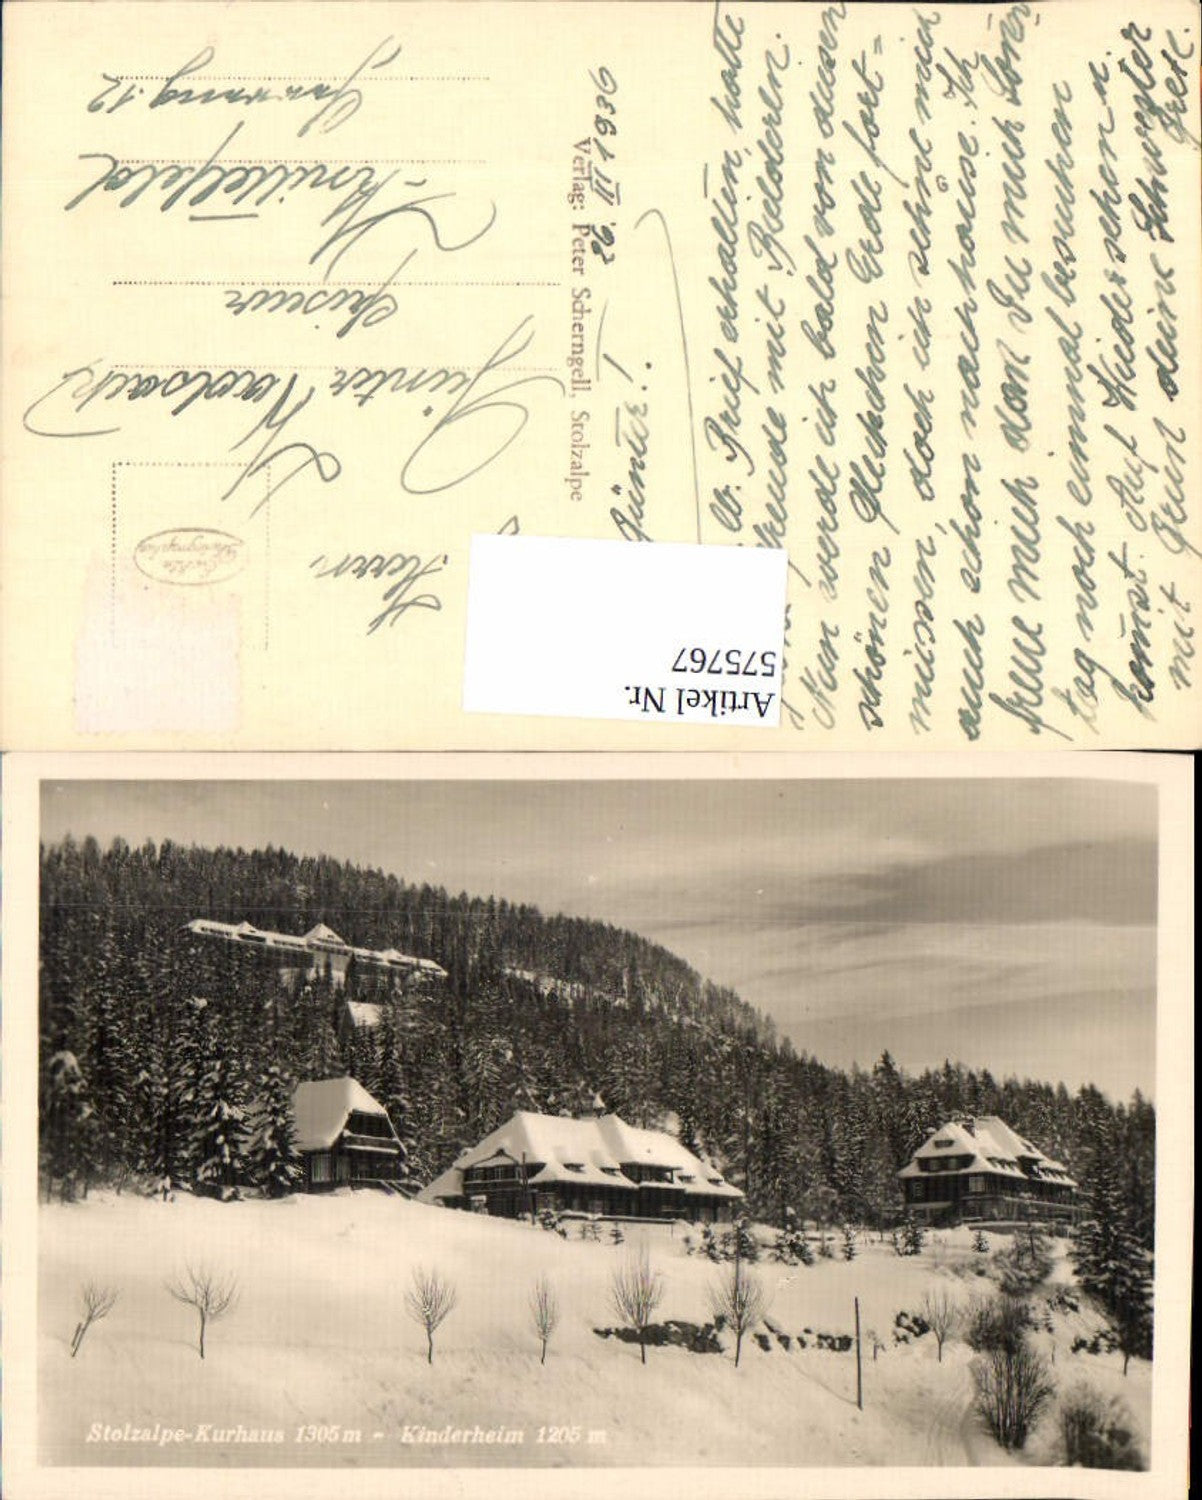 26. III 1936
Günter!
lb. Brief erhalten, hatte
Freude mit Bilderln.
Nun werde ich bald von diesen
schönen Fleckchen Erde fort=
müssen, doch ich sehne mich
auch schon nach hause. Ich
freue mich wenn Du mich Sonn-
tag noch einmal besuchen
kommst. Auf Wiedersehen u.
mit Gruss deine Schwester
Gretl.
Verlag: Peter Scherngell, Stolzalpe
Herrn
Günter
Friseur
Knittelfeld
12
Artikel Nr.
575767
Stolzalpe-Kurhaus 1305 m - Kinderheim 1205 m